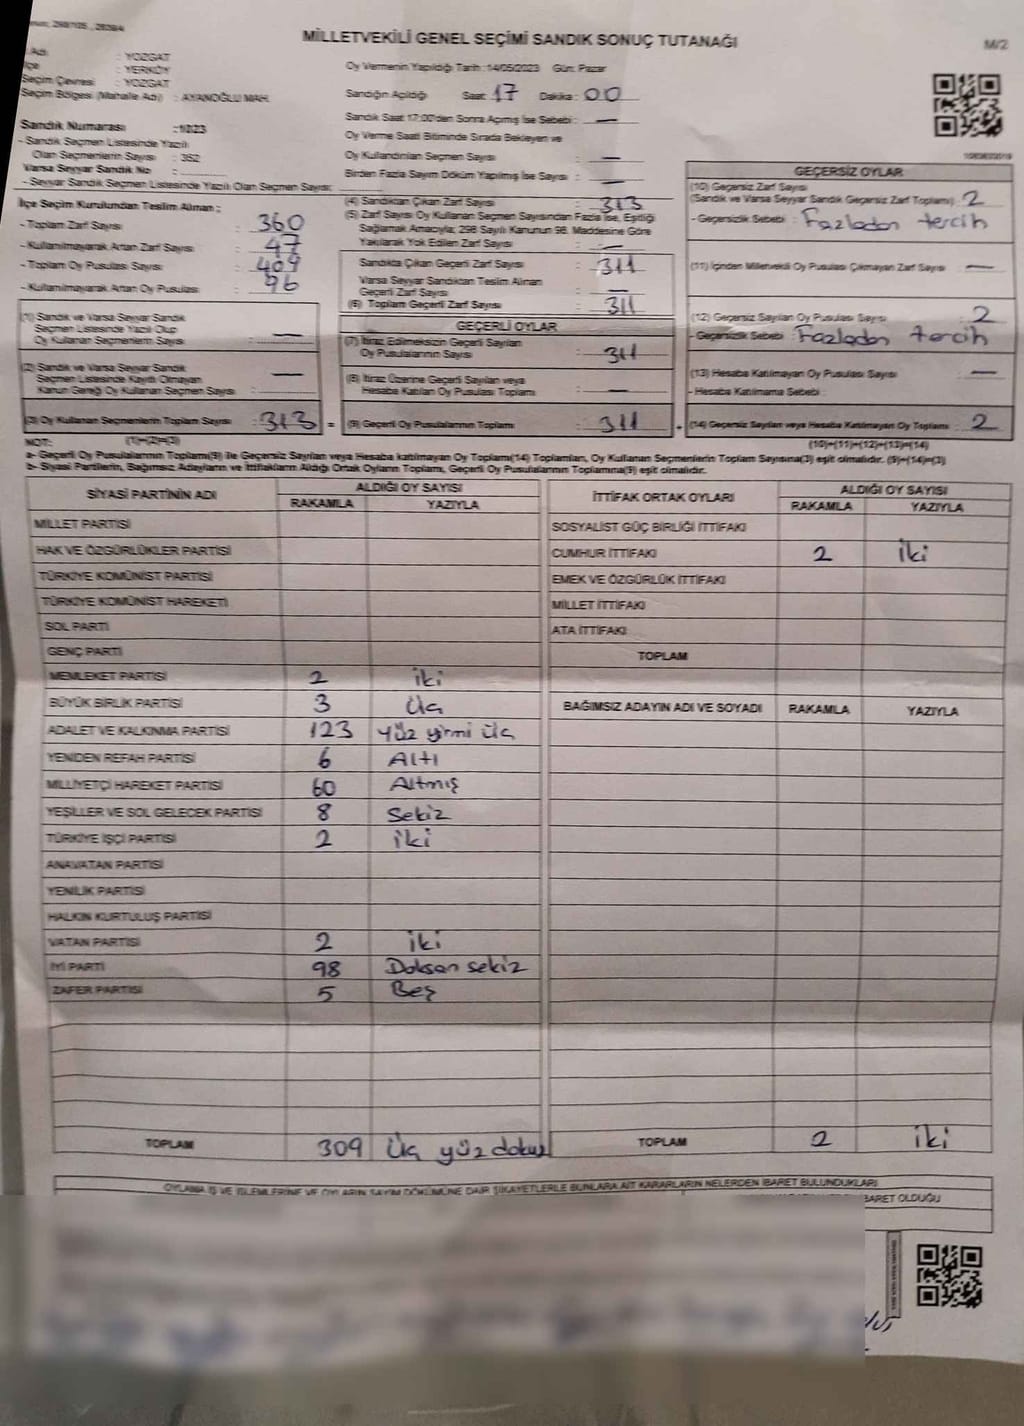 MİLLETVEKİLİ GENEL SEÇİMİ SANDIK SONUÇ TUTANAĞI
M/2
Adı : YOZGAT
İlçe : YERKÖY
Seçim Çevresi : YOZGAT
Seçim Bölgesi (Mahalle Adı) : AYANOĞLU MAH.
Sandık Numarası : 1023
- Sandık Seçmen Listesinde Yazılı
Olan Seçmenlerin Sayısı : 352
Varsa Seyyar Sandık No :
- Seyyar Sandık Seçmen Listesinde Yazılı Olan Seçmen Sayısı:
Oy Vermenin Yapıldığı Tarih : 14/05/2023 Gün: Pazar
Sandığın Açıldığı Saat: 17 Dakika : 00
Sandık Saat 17:00'den Sonra Açılmış İse Sebebi : —
Oy Verme Saati Bitiminde Sırada Bekleyen ve
Oy Kullandırılan Seçmen Sayısı : —
Birden Fazla Sayım Döküm Yapılmış İse Sayısı : —
İlçe Seçim Kurulundan Teslim Alınan ;
- Toplam Zarf Sayısı : 360
- Kullanılmayarak Artan Zarf Sayısı : 47
- Toplam Oy Pusulası Sayısı : 409
- Kullanılmayarak Artan Oy Pusulası : 96
(1) Sandık ve Varsa Seyyar Sandık
Seçmen Listesinde Yazılı Olup
Oy Kullanan Seçmenlerin Sayısı : —
(2) Sandık ve Varsa Seyyar Sandık
Seçmen Listesinde Kayıtlı Olmayan
Kanun Gereği Oy Kullanan Seçmen Sayısı : —
(3) Oy Kullanan Seçmenlerin Toplam Sayısı : 313 =
(4) Sandıktan Çıkan Zarf Sayısı : 313
(5) Zarf Sayısı Oy Kullanan Seçmen Sayısından Fazla İse, Eşitliği
Sağlamak Amacıyla; 298 Sayılı Kanunun 98. Maddesine Göre
Yakılarak Yok Edilen Zarf Sayısı : —
Sandıkta Çıkan Geçerli Zarf Sayısı : 311
Varsa Seyyar Sandıktan Teslim Alınan
Geçerli Zarf Sayısı : —
(6) Toplam Geçerli Zarf Sayısı : 311
GEÇERLİ OYLAR
(7) İtiraz Edilmeksizin Geçerli Sayılan
Oy Pusulalarının Sayısı : 311
(8) İtiraz Üzerine Geçerli Sayılan veya
Hesaba Katılan Oy Pusulası Toplamı : —
(9) Geçerli Oy Pusulalarının Toplamı : 311
GEÇERSİZ OYLAR
(10) Geçersiz Zarf Sayısı
(Sandık ve Varsa Seyyar Sandık Geçersiz Zarf Toplamı) : 2
- Geçersizlik Sebebi : Fazladan tercih
(11) İçinden Milletvekili Oy Pusulası Çıkmayan Zarf Sayısı : —
(12) Geçersiz Sayılan Oy Pusulası Sayısı : 2
- Geçersizlik Sebebi : Fazladan tercih
(13) Hesaba Katılmayan Oy Pusulası Sayısı : —
- Hesaba Katılmama Sebebi :
(14) Geçersiz Sayılan veya Hesaba Katılmayan Oy Toplamı : 2
NOT: (1)+(2)=(3) (10)+(11)+(12)+(13)=(14)
a- Geçerli Oy Pusulalarının Toplamı(9) ile Geçersiz Sayılan veya Hesaba katılmayan Oy Toplamı(14) Toplamları, Oy Kullanan Seçmenlerin Toplam Sayısına(3) eşit olmalıdır. (9)+(14)=(3)
b- Siyasi Partilerin, Bağımsız Adayların ve İttifakların Aldığı Ortak Oyların Toplamı, Geçerli Oy Pusulalarının Toplamına(9) eşit olmalıdır.
SİYASİ PARTİNİN ADI ALDIĞI OY SAYISI
RAKAMLA YAZIYLA
MİLLET PARTİSİ
HAK VE ÖZGÜRLÜKLER PARTİSİ
TÜRKİYE KOMÜNİST PARTİSİ
TÜRKİYE KOMÜNİST HAREKETİ
SOL PARTİ
GENÇ PARTİ
MEMLEKET PARTİSİ 2 iki
BÜYÜK BİRLİK PARTİSİ 3 Üç
ADALET VE KALKINMA PARTİSİ 123 Yüz yirmi üç
YENİDEN REFAH PARTİSİ 6 Altı
MİLLİYETÇİ HAREKET PARTİSİ 60 Altmış
YEŞİLLER VE SOL GELECEK PARTİSİ 8 Sekiz
TÜRKİYE İŞÇİ PARTİSİ 2 iki
ANAVATAN PARTİSİ
YENİLİK PARTİSİ
HALKIN KURTULUŞ PARTİSİ
VATAN PARTİSİ 2 iki
İYİ PARTİ 98 Doksan sekiz
ZAFER PARTİSİ 5 Beş
TOPLAM 309 Üç yüz dokuz
İTTİFAK ORTAK OYLARI ALDIĞI OY SAYISI
RAKAMLA YAZIYLA
SOSYALİST GÜÇ BİRLİĞİ İTTİFAKI
CUMHUR İTTİFAKI 2 İki
EMEK VE ÖZGÜRLÜK İTTİFAKI
MİLLET İTTİFAKI
ATA İTTİFAKI
TOPLAM
BAĞIMSIZ ADAYIN ADI VE SOYADI RAKAMLA YAZIYLA
TOPLAM 2 iki
OYLAMA İŞ VE İŞLEMLERİNE VE OYLARIN SAYIM DÖKÜMÜNE DAİR ŞİKAYETLERLE BUNLARA AİT KARARLARIN NELERDEN İBARET BULUNDUKLARI
İBARET OLDUĞU